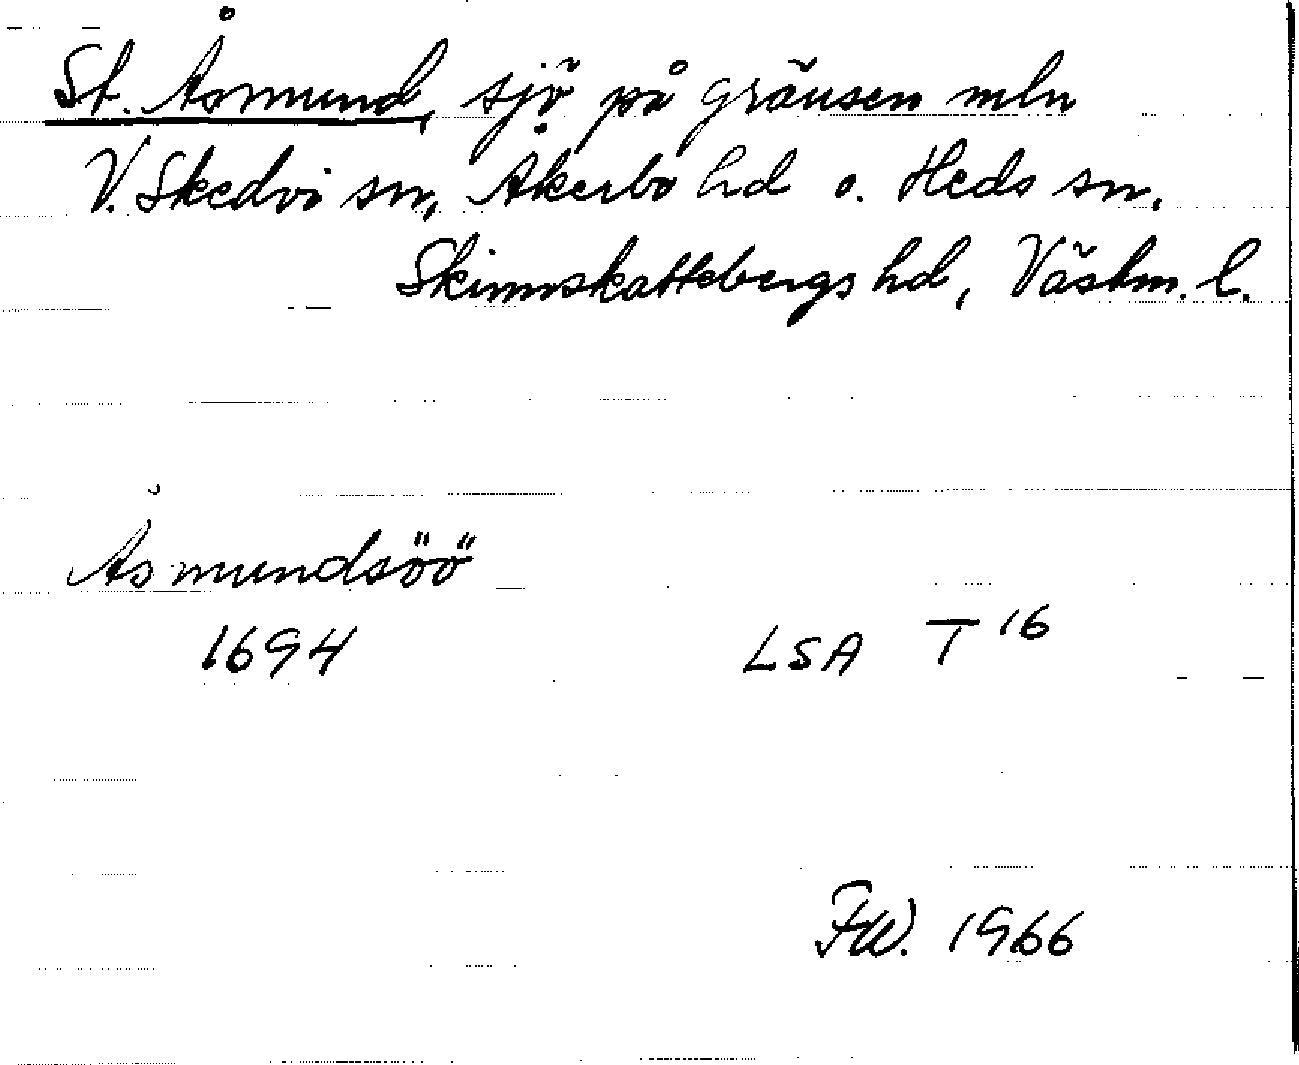 St. Åsmund, sjö på gränsen mln
V. Skedvi sn, Åkerbo hd o. Heds sn,
Skinnskattebergs hd, Västm. l.
Åsmundsöö
1694 LSA T 16
F.W. 1966